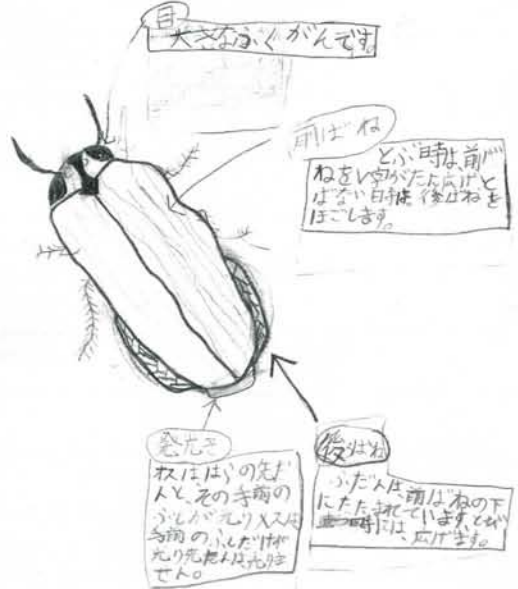 目
大きなふくがんです。
前ばね
とぶ時は、前ば
ねをV字がたに広げと
ばない時は、後ばねを
ほごします。
発光き
オスははらの先た
んと、その手前の
ふしが光りメスは
手前のふしだけが
光り先たんは、光りま
せん。
後ばね
ふだんは、前ばねの下
にたたまれています。とぶ
時には、広げます。